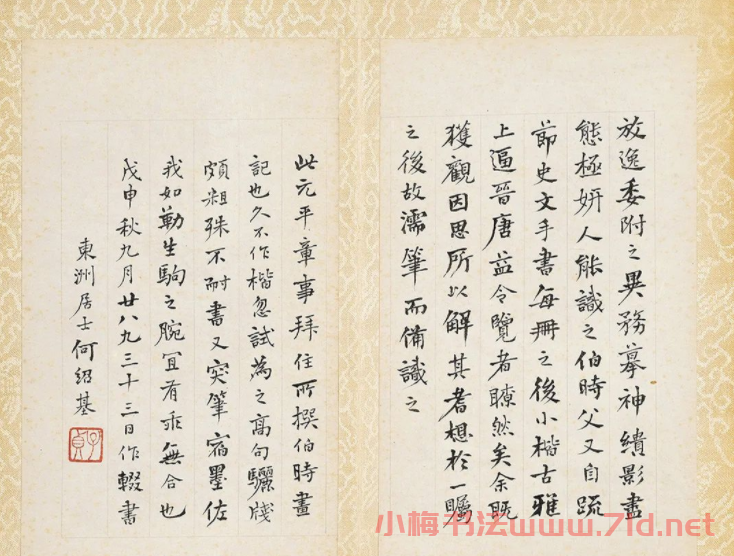 放逸委附之異務摹神繢影盡
態極妍人能識之伯時父又自疏
節史文手書每冊之後小楷古雅
上逼晉唐益令覽者瞭然矣余既
獲觀因思所以解其耆想於一矚
之後故濡筆而備識之
此元平章事拜住所撰伯時畫
記也久不作楷忽試為之高句驪牋
頗粗殊不耐書又突筆宿墨佐
我如勒生駒之腕宜有乖無合也
戊申秋九月廿八九三十三日作輟書
東洲居士何紹基
子貞
小梅书法www.71d.net